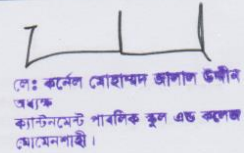 লেঃ কর্নেল মোহাম্মদ জালাল উদ্দীন
অধ্যক্ষ
ক্যান্টনমেন্ট পাবলিক স্কুল এন্ড কলেজ
মোমেনশাহী।